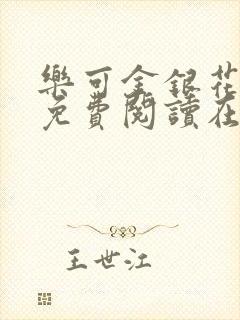 樂可金銀花
免費閱讀在
王世江